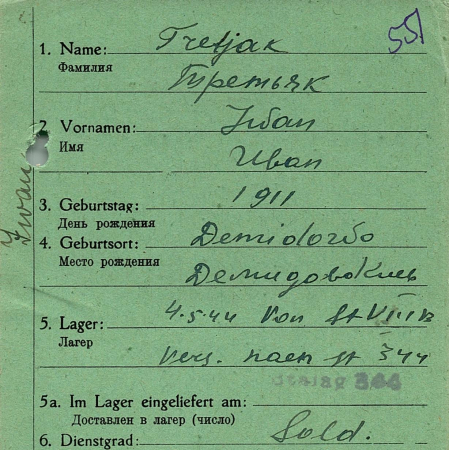 551
1. Name: Tretjak
Фамилия Третьяк
2. Vornamen: Iban
Имя Иван
Iwan
3. Geburtstag: 1911
День рождения
4. Geburtsort: Demidowo
Место рождения
5. Lager: 4.5.44 von St VIII B
Лагер Vers. nach St 344
Stalag 344
5a. Im Lager eingeliefert am:
Доставлен в лагер (число)
6. Dienstgrad: Sold.